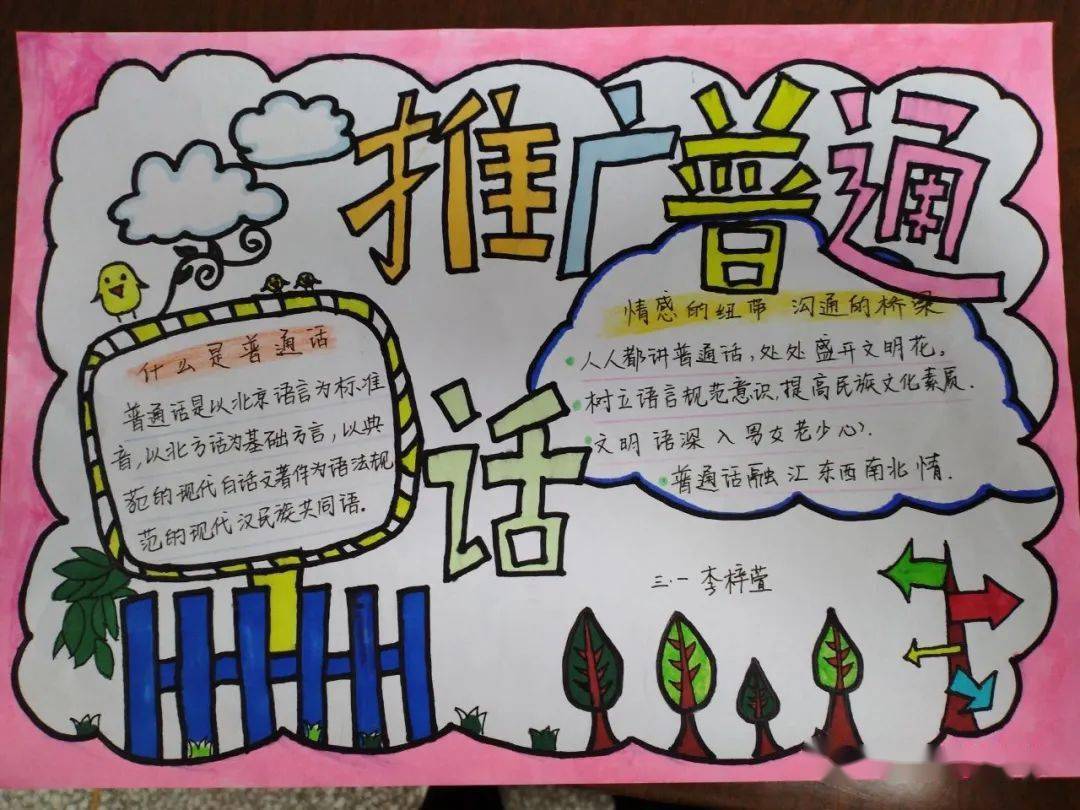 推广普通
话
什么是普通话
普通话是以北京语言为标准
音,以北方话为基础方言,以典
范的现代白话文著作为语法规
范的现代汉民族共同语.
情感的纽带 沟通的桥梁
人人都讲普通话,处处盛开文明花。
树立语言规范意识,提高民族文化素质.
文明语深入男女老少心).
普通话融汇东西南北情.
三·一 李梓萱